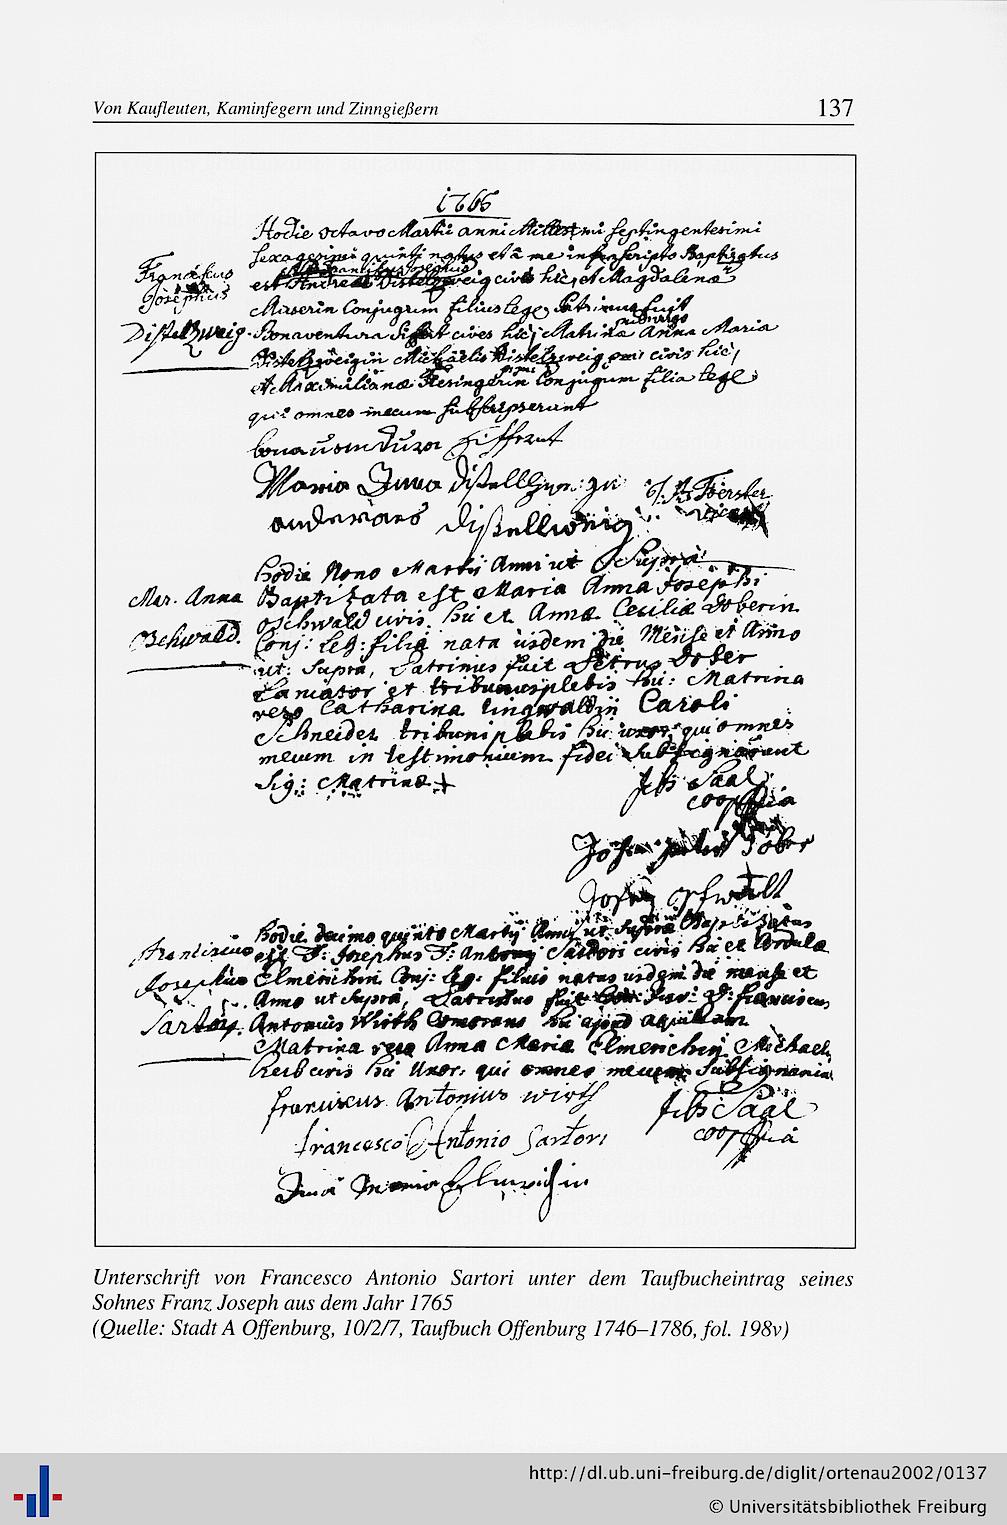 Von Kaufleuten, Kaminfegern und Zinngießern
137
1765
Hodie octavo Martii anni Millesimi septingentesimi
sexagesimi quinti natus et à me infrascripto Baptizatus
Franciscus
Josephus
est Andreae Distelzweig civis hic, et Magdalenae
Conjugum filius leg. Patrinus fuit
Distelzweig.
Bonaventura cives hic, Matrina Anna Maria
Distelzweigin Michaelis Distelzweig civis hic,
et Maximilianae Conjugum filia leg.
qui omnes mecum subscripserunt
Maria Anna
Hodie Nono Martii Anni ut Supra
Mar. Anna
Baptizata est Maria Anna Josephi
Oschwald civis hic et Annae Ceciliae Doberin
Oschwald.
Conj: Leg: filia nata iisdem die Mense et Anno
ut Supra, Patrinus fuit Petrus Dober
Laniator et tribunusplebis hic: Matrina
vero Catharina Caroli
Schneider tribuniplebis hic uxor qui omnes
mecum in testimonium fidei subsignarunt
Sig: Matrinae +
Saal
Dober
Hodie decimo quinto Martii Anni ut Supra Baptizatus
Franciscus
est F: Josephus F: Antony Sartori civis hic et Cordula
Josephus
Elmerichin Conj: Leg: filius natus iisdem die mense et
Anno ut Supra, Patrinus fuit D: Franciscus
Sartory.
Antonius Wirth hic apud aquilam
Matrina vero Anna Maria Elmerichin Michael
civis hic Uxor: qui omnes mecum
franciscus Antonius wirth
Saal
francesco Antonio Sartori
Anna Maria
Unterschrift von Francesco Antonio Sartori unter dem Taufbucheintrag seines
Sohnes Franz Joseph aus dem Jahr 1765
(Quelle: Stadt A Offenburg, 10/2/7, Taufbuch Offenburg 1746–1786, fol. 198v)
http://dl.ub.uni-freiburg.de/diglit/ortenau2002/0137
© Universitätsbibliothek Freiburg